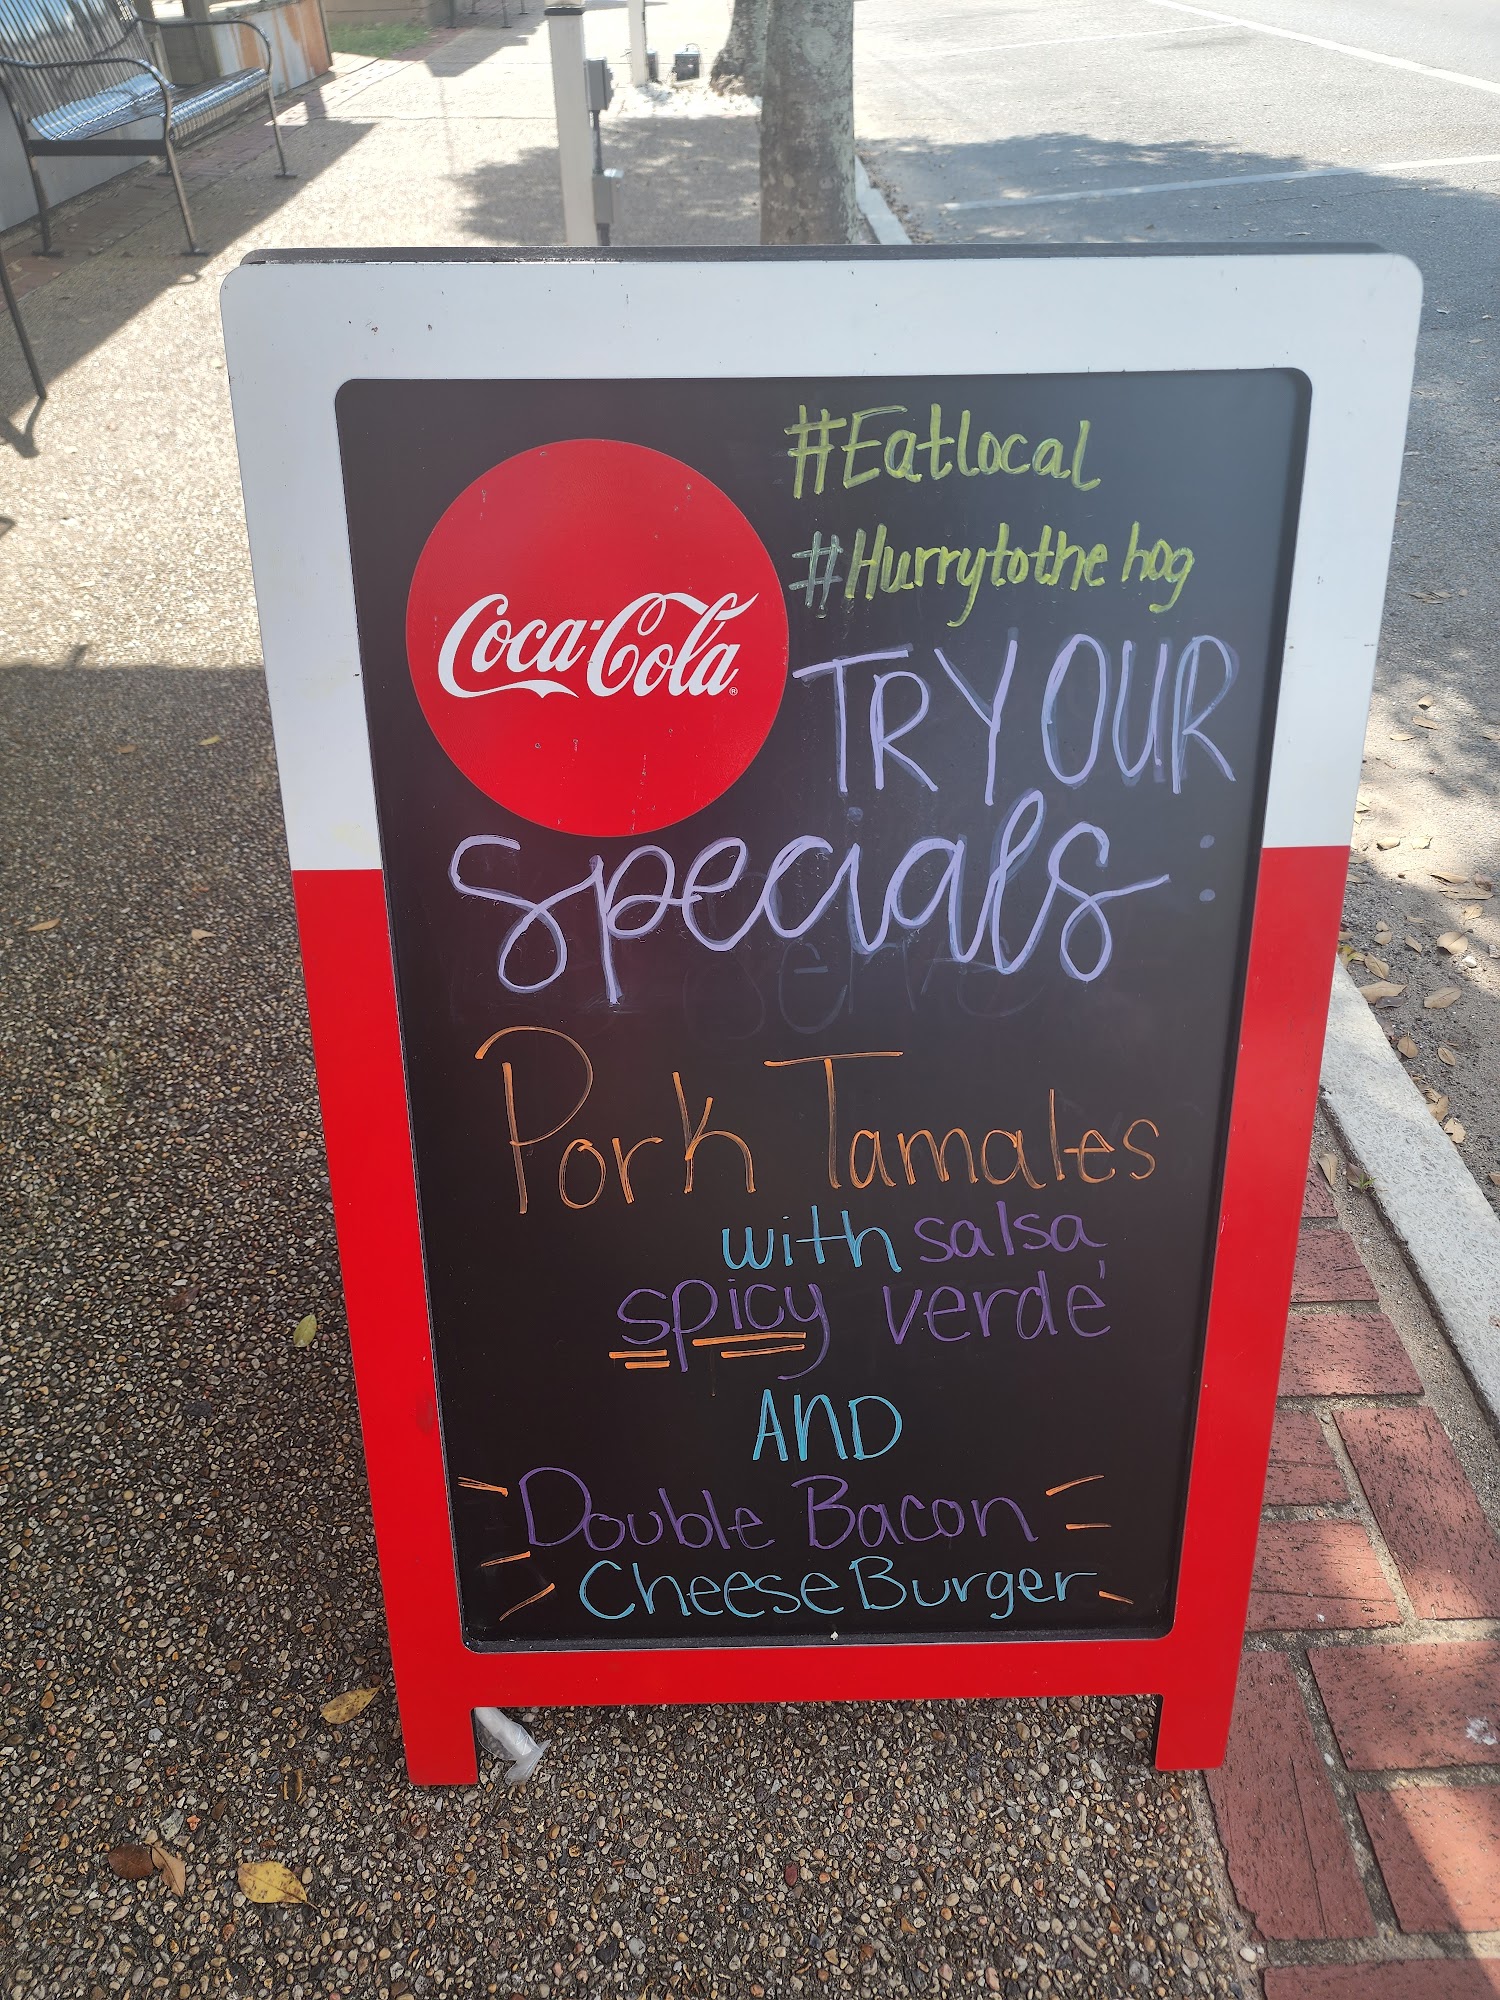 #Eatlocal
#Hurrytothe hog
Coca-Cola®
TRY OUR
specials:
Pork Tamales
with salsa
spicy verdé
AND
Double Bacon
Cheese Burger